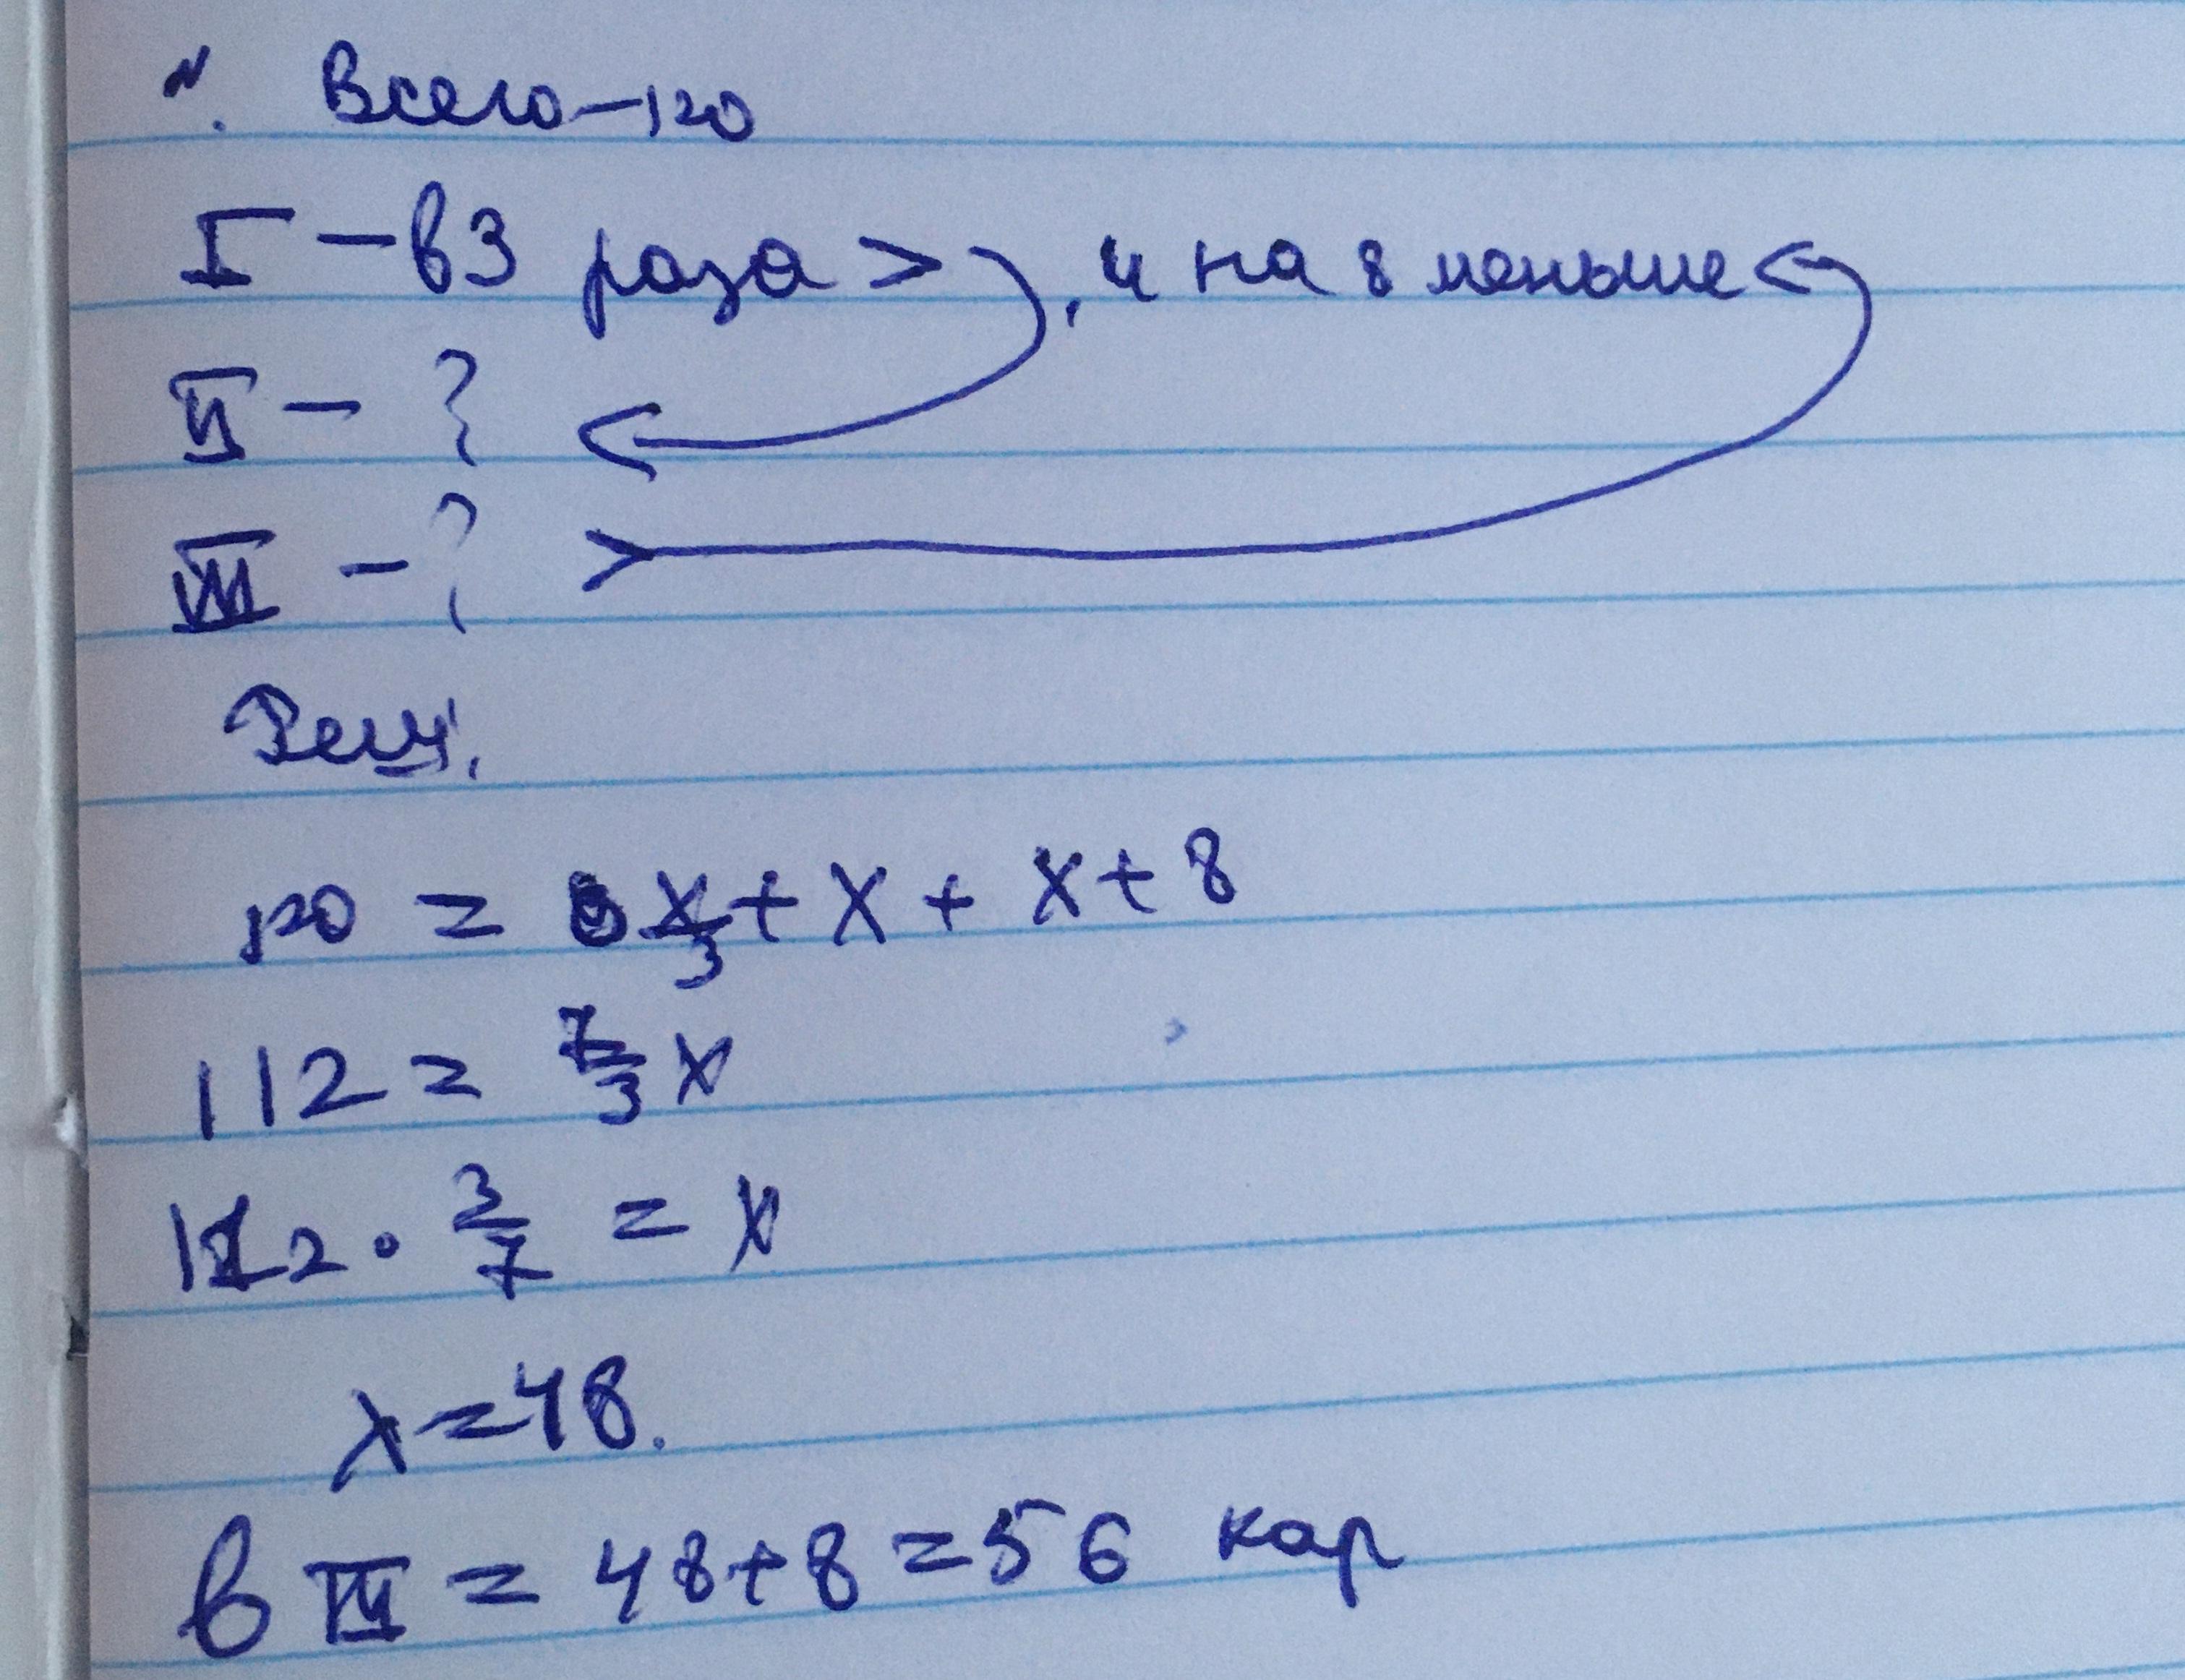 N. Всего – 120
I – в 3 раза > , и на 8 меньше <
II – ?
III – ?
Реш.
120 = x/3 + x + x + 8
112 = 7/3 x
112 · 3/7 = x
x = 48.
в III = 48 + 8 = 56 кар